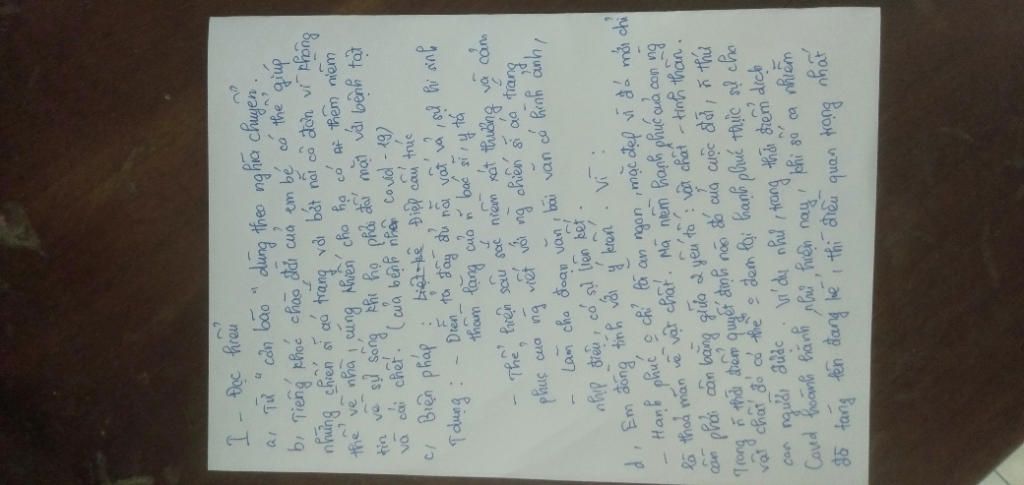 I - Đọc hiểu
a, Từ "cơn bão" dùng theo nghĩa chuyển.
b, Tiếng khóc chào đời của em bé có thể giúp
những chiến sĩ áo trắng vơi bớt nỗi cô đơn vì không
thể về nhà, cũng khiến cho họ có thêm niềm
tin về sự sống khi họ phải đối mặt với bệnh tật
và cái chết. (của bệnh nhân covid-19)
c, Biện pháp: liệt kê Điệp cấu trúc
T dụng: - Diễn tả đầy đủ nỗi vất vả, sự hi sinh
thầm lặng của n bác sĩ, y tá
- Thể hiện sâu sắc niềm xót thương và cảm
phục của ng viết với ng chiến sĩ áo trắng
- Làm cho đoạn văn, bài văn có hình ảnh,
nhịp điệu, có sự liên kết.
d, Em đồng tình với ý kiến. Vì:
- Hạnh phúc o chỉ là ăn ngon, mặc đẹp vì đó mới chỉ
là thoả mãn về vật chất. Mà niềm hạnh phúc của con ng
cần phải cân bằng giữa 2 yếu tố: vật chất - tinh thần.
Trong n thời điểm quyết định nào đó của cuộc đời, n thứ
vật chất đó có thể o đem lại hạnh phúc thực sự cho
con người được. Ví dụ như, trong thời điểm dịch
Covid hoành hành như hiện nay, khi số ca nhiễm
đã tăng lên đáng kể, thì điều quan trọng nhất